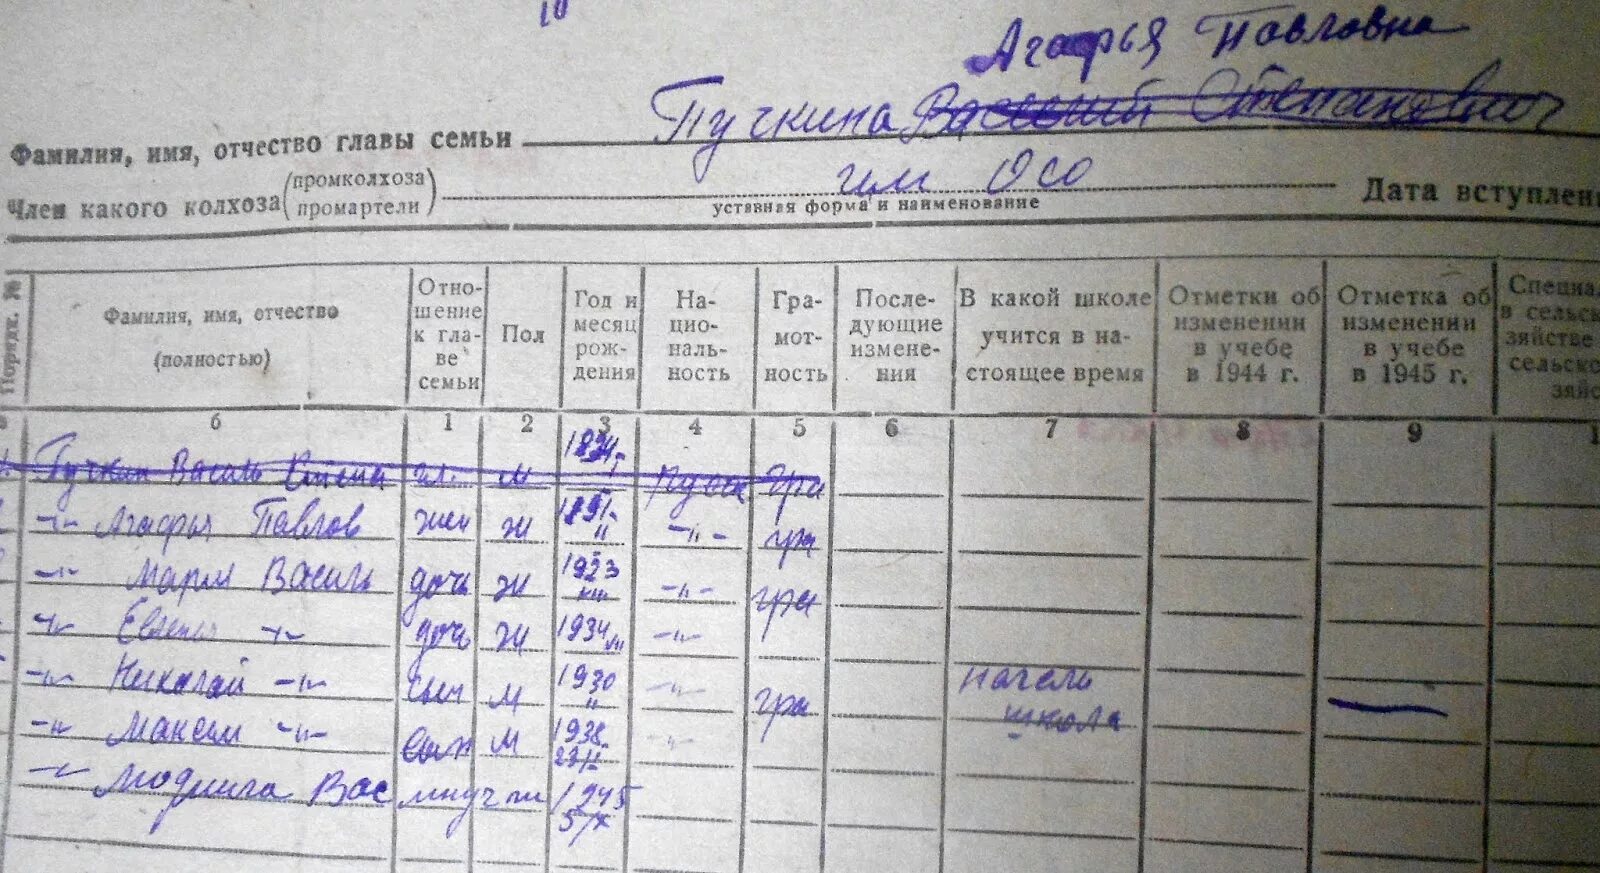 10
Агафья Павловна
Фамилия, имя, отчество главы семьи Пучкина Василий Степанович
Член какого колхоза (промколхоза промартели) им Осо Дата вступлени
уставная форма и наименование
Порядк. № Фамилия, имя, отчество (полностью) Отношение к главе семьи Пол Год и месяц рождения Национальность Грамотность Последующие изменения В какой школе учится в настоящее время Отметки об изменении в учебе в 1944 г. Отметка об изменении в учебе в 1945 г. Специа в сельск зяйстве сельско зяйс
б 1 2 3 4 5 6 7 8 9 1
Пучкин Василь Степа гл. м гра
-"- Агафья Павлов жен ж 1891 " -"- гра
-"- Мария Василь дочь ж 1923 -"- гра
-"- -"- дочь ж 1934 -"-
-"- Николай -"- сын м 1930 " -"- гра школа
-"- Максим -"- сын м 1938 -"-
-"- Людмила Вас 1945 5/X